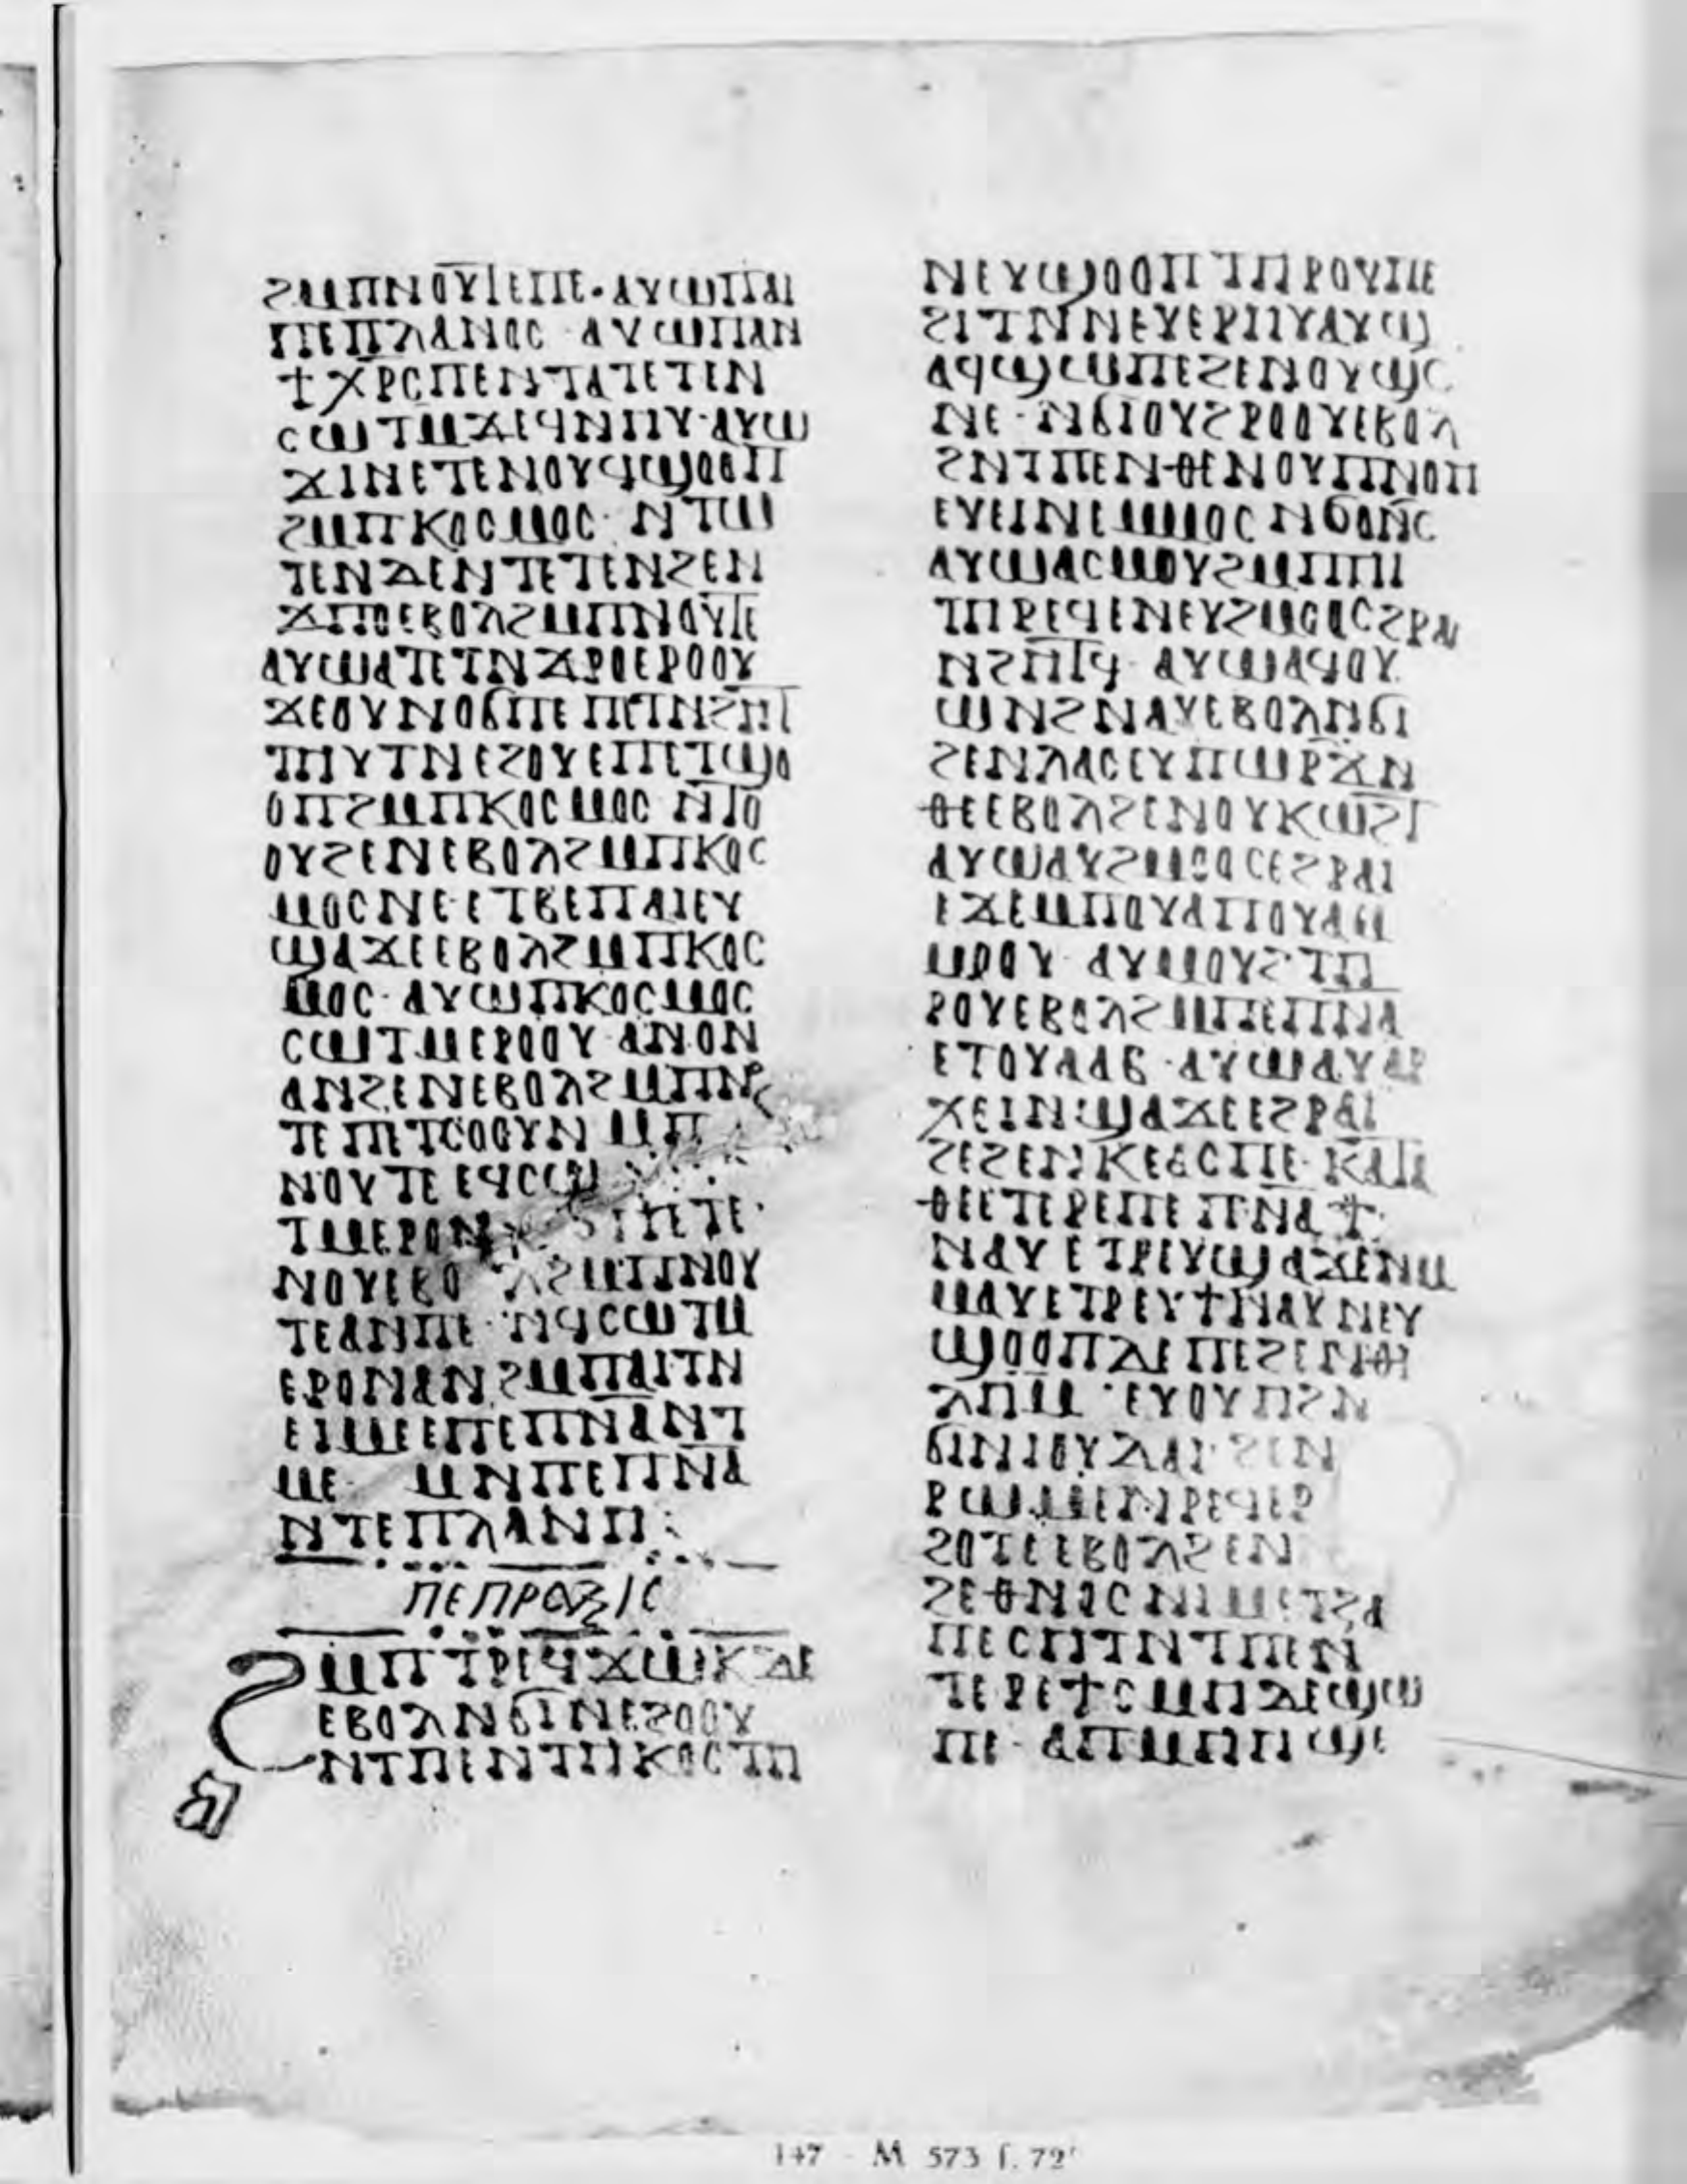 ϨⲘⲠⲚⲞⲨⲦⲈⲠⲈ· ⲀⲨⲰⲠⲀⲒ
ⲠⲈⲠⲖⲀⲚⲞⲤ ⲀⲨⲰⲠⲀⲚ
ϮⲬⲢⲤⲠⲈⲚⲦⲀⲦⲈⲦⲈⲚ
ⲤⲰⲦⲘϪⲈϤⲚⲎⲨ· ⲀⲨⲰ
ϪⲒⲚⲈⲦⲈⲚⲞⲨϤϢⲞⲞⲠ
ϨⲘⲠⲔⲞⲤⲘⲞⲤ· ⲚⲦⲰ
ⲦⲈⲚⲆⲈⲚⲦⲈⲦⲈⲚϨⲈⲚ
ϪⲠⲞⲈⲂⲞⲖϨⲘⲠⲚⲞⲨⲦⲈ
ⲀⲨⲰⲀⲦⲈⲦⲚϪⲢⲞⲈⲢⲞⲞⲨ
ϪⲈⲞⲨⲚⲞϬⲠⲈⲠⲈⲦⲚϨⲎⲦ
ⲦⲎⲨⲦⲚⲈϨⲞⲨⲈⲠⲈⲦϢⲞ
ⲞⲠϨⲘⲠⲔⲞⲤⲘⲞⲤ ⲚⲦⲞ
ⲞⲨϨⲈⲚⲈⲂⲞⲖϨⲘⲠⲔⲞⲤ
ⲘⲞⲤⲚⲈ· ⲈⲦⲂⲈⲠⲀⲒⲈⲨ
ϢⲀϪⲈⲈⲂⲞⲖϨⲘⲠⲔⲞⲤ
ⲘⲞⲤ· ⲀⲨⲰⲠⲔⲞⲤⲘⲞⲤ
ⲤⲰⲦⲘⲈⲢⲞⲞⲨ ⲀⲚⲞⲚ
ⲀⲚϨⲈⲚⲈⲂⲞⲖϨⲘⲠⲚⲞⲨ
ⲦⲈ ⲠⲈⲦⲤⲞⲞⲨⲚ ⲘⲠ
ⲚⲞⲨⲦⲈ ⲈϤⲤⲰ
ⲦⲘⲈⲢⲞⲚ ⲠⲈⲦⲈ·
ⲚⲞⲨⲈⲂⲞ ⲖϨⲘⲠⲚⲞⲨ
ⲦⲈⲀⲚⲠⲈ· ⲚϤⲤⲰⲦⲘ
ⲈⲢⲞⲚⲀⲚ ϨⲘⲠⲀⲒⲦⲚ
ⲈⲒⲘⲈⲈⲠⲈⲠⲚⲀⲚⲦ
ⲘⲈ· ⲘⲚⲠⲈⲠⲚⲀ
ⲚⲦⲈⲠⲖⲀⲚⲎ:
ⲠⲈⲠⲢⲀⲜⲒⲤ
ϨⲘⲠⲦⲢⲈϤϪⲰⲔⲆⲈ
ⲈⲂⲞⲖⲚϬⲒⲚⲈϨⲞⲞⲨ
ⲚⲦⲠⲈⲚⲦⲎⲔⲞⲤⲦⲎ
ⲚⲈⲨϢⲞⲞⲠ ⲦⲎⲢⲞⲨⲠⲈ
ϨⲒⲦⲚⲚⲈⲨⲈⲢⲎⲨⲀⲨⲰ
ⲀϤϢⲰⲠⲈϨⲈⲚⲞⲨϢⲤ
ⲚⲈ· ⲚϬⲒⲞⲨϨⲢⲞⲞⲨⲈⲂⲞⲖ
ϨⲚⲦⲠⲈⲚⲐⲈⲚⲞⲨⲠⲚⲞⲎ
ⲈⲨⲈⲒⲚⲈⲘⲘⲞⲤ ⲚϬⲞⲚⲤ
ⲀⲨⲰⲀⲤⲘⲞⲨϨⲘⲠⲎⲒ
ⲦⲎⲢϤⲈⲚⲈⲨϨⲘⲞⲞⲤϨⲢⲀⲒ
ⲚϨⲎⲦϤ· ⲀⲨⲰⲀϤⲞⲨ
ⲰⲚϨⲚⲀⲨⲈⲂⲞⲖⲚϬⲒ
ϨⲈⲚⲖⲀⲤⲈⲨⲠⲰⲢϪⲚ
ⲐⲈⲈⲂⲞⲖϨⲈⲚⲞⲨⲔⲰϨⲦ
ⲀⲨⲰⲀⲨϨⲘⲞⲞⲤⲈϨⲢⲀⲒ
ⲈϪⲈⲘⲠⲞⲨⲀⲠⲞⲨⲀⲘ
ⲘⲞⲞⲨ· ⲀⲨⲘⲞⲨϨ ⲦⲎ
ⲢⲞⲨⲈⲂⲞⲖϨⲘⲠⲈⲠⲚⲀ
ⲈⲦⲞⲨⲀⲀⲂ· ⲀⲨⲰⲀⲨⲀⲢ
ⲬⲈⲒⲚϢⲀϪⲈⲈϨⲢⲀⲒ
ϨⲈϨⲈⲚⲔⲈⲀⲤⲠⲈ· ⲔⲀⲦⲀ
ⲐⲈⲈⲦⲈⲢⲈⲠⲈⲠⲚⲀϮ
ⲚⲀⲨⲈⲦⲢⲈⲨϢⲀϪⲈⲚⲘ
ⲘⲀⲨⲈⲦⲢⲈⲨϮⲚⲀⲨⲚⲈⲨ
ϢⲞⲞⲠⲆⲈⲠⲈϨⲈⲚⲐⲒ
ⲖⲎⲘ· ⲈⲨⲞⲨⲎϨⲚ
ϬⲒⲚⲒⲞⲨⲆⲀⲒ· ϨⲈⲚ
ⲢⲰⲘⲈⲚⲢⲈϤⲈⲢ
ϨⲞⲦⲈⲈⲂⲞⲖϨⲈⲚ
ϨⲈⲐⲚⲞⲤ ⲚⲒⲘⲈⲦϨⲀ
ⲠⲈⲤⲎⲦⲚⲦⲠⲈⲚ
ⲦⲈⲢⲈϮⲤⲘⲎⲆⲈϢⲰ
ⲠⲈ· ⲀⲠⲘⲎⲎϢⲈ
147 - M 573 f. 72ʳ